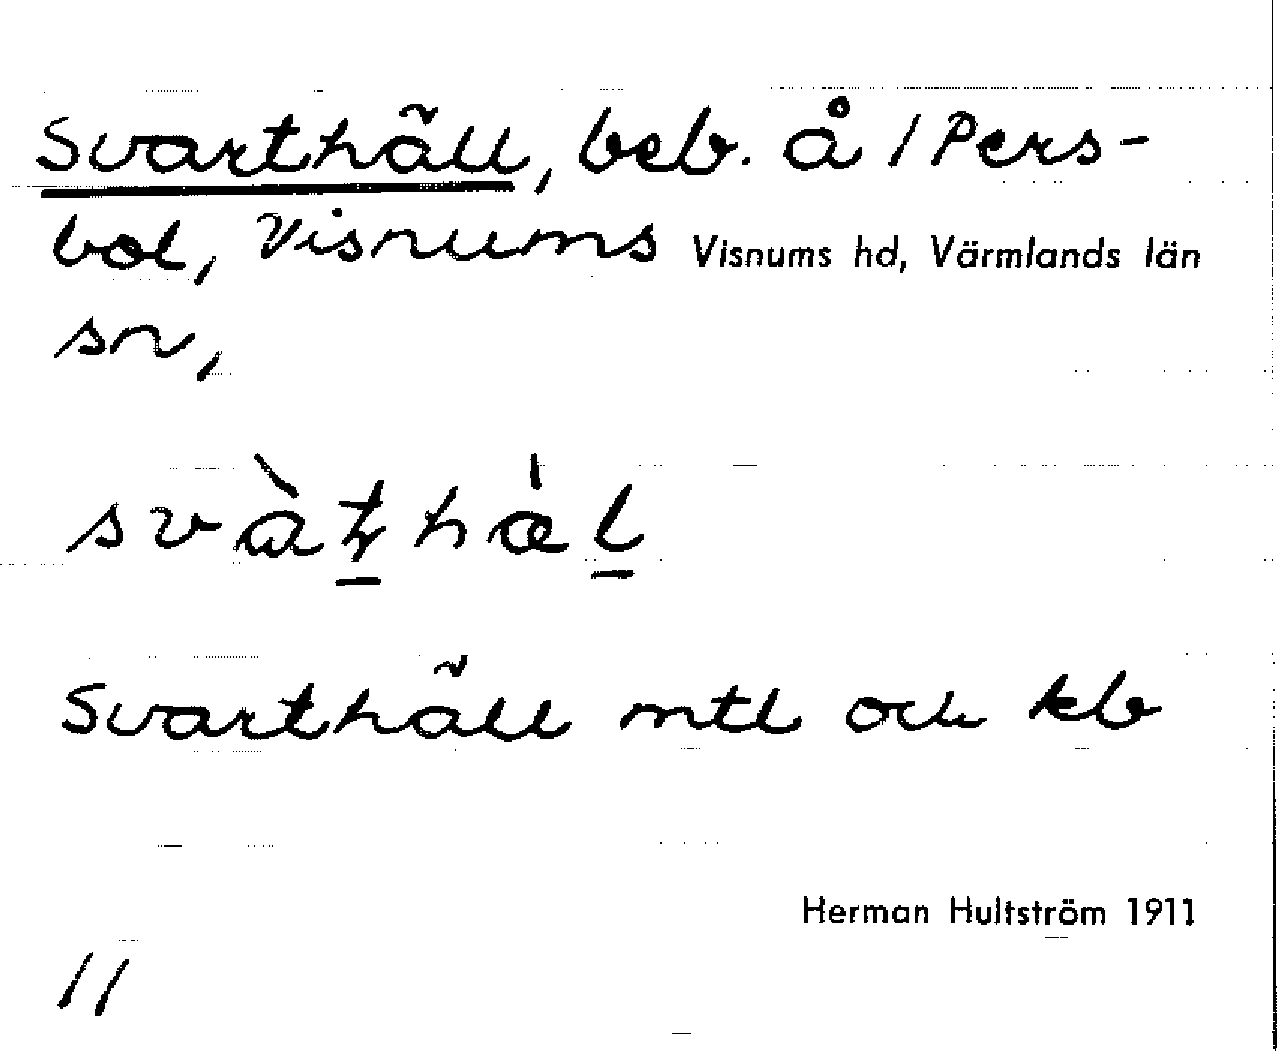 Svarthäll, beb. å 1 Pers-
bol, Visnums Visnums hd, Värmlands län
sn,
svàt̠hæ̍l̠
Svarthäll mtl och kb
Herman Hultström 1911
11